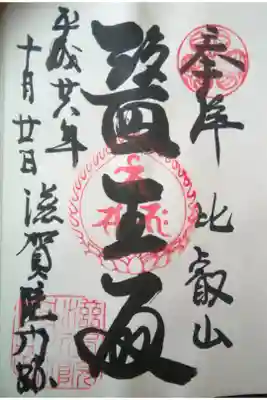 奉拝 比叡山
醫王
平成廿六年
十月廿日 滋賀院門跡